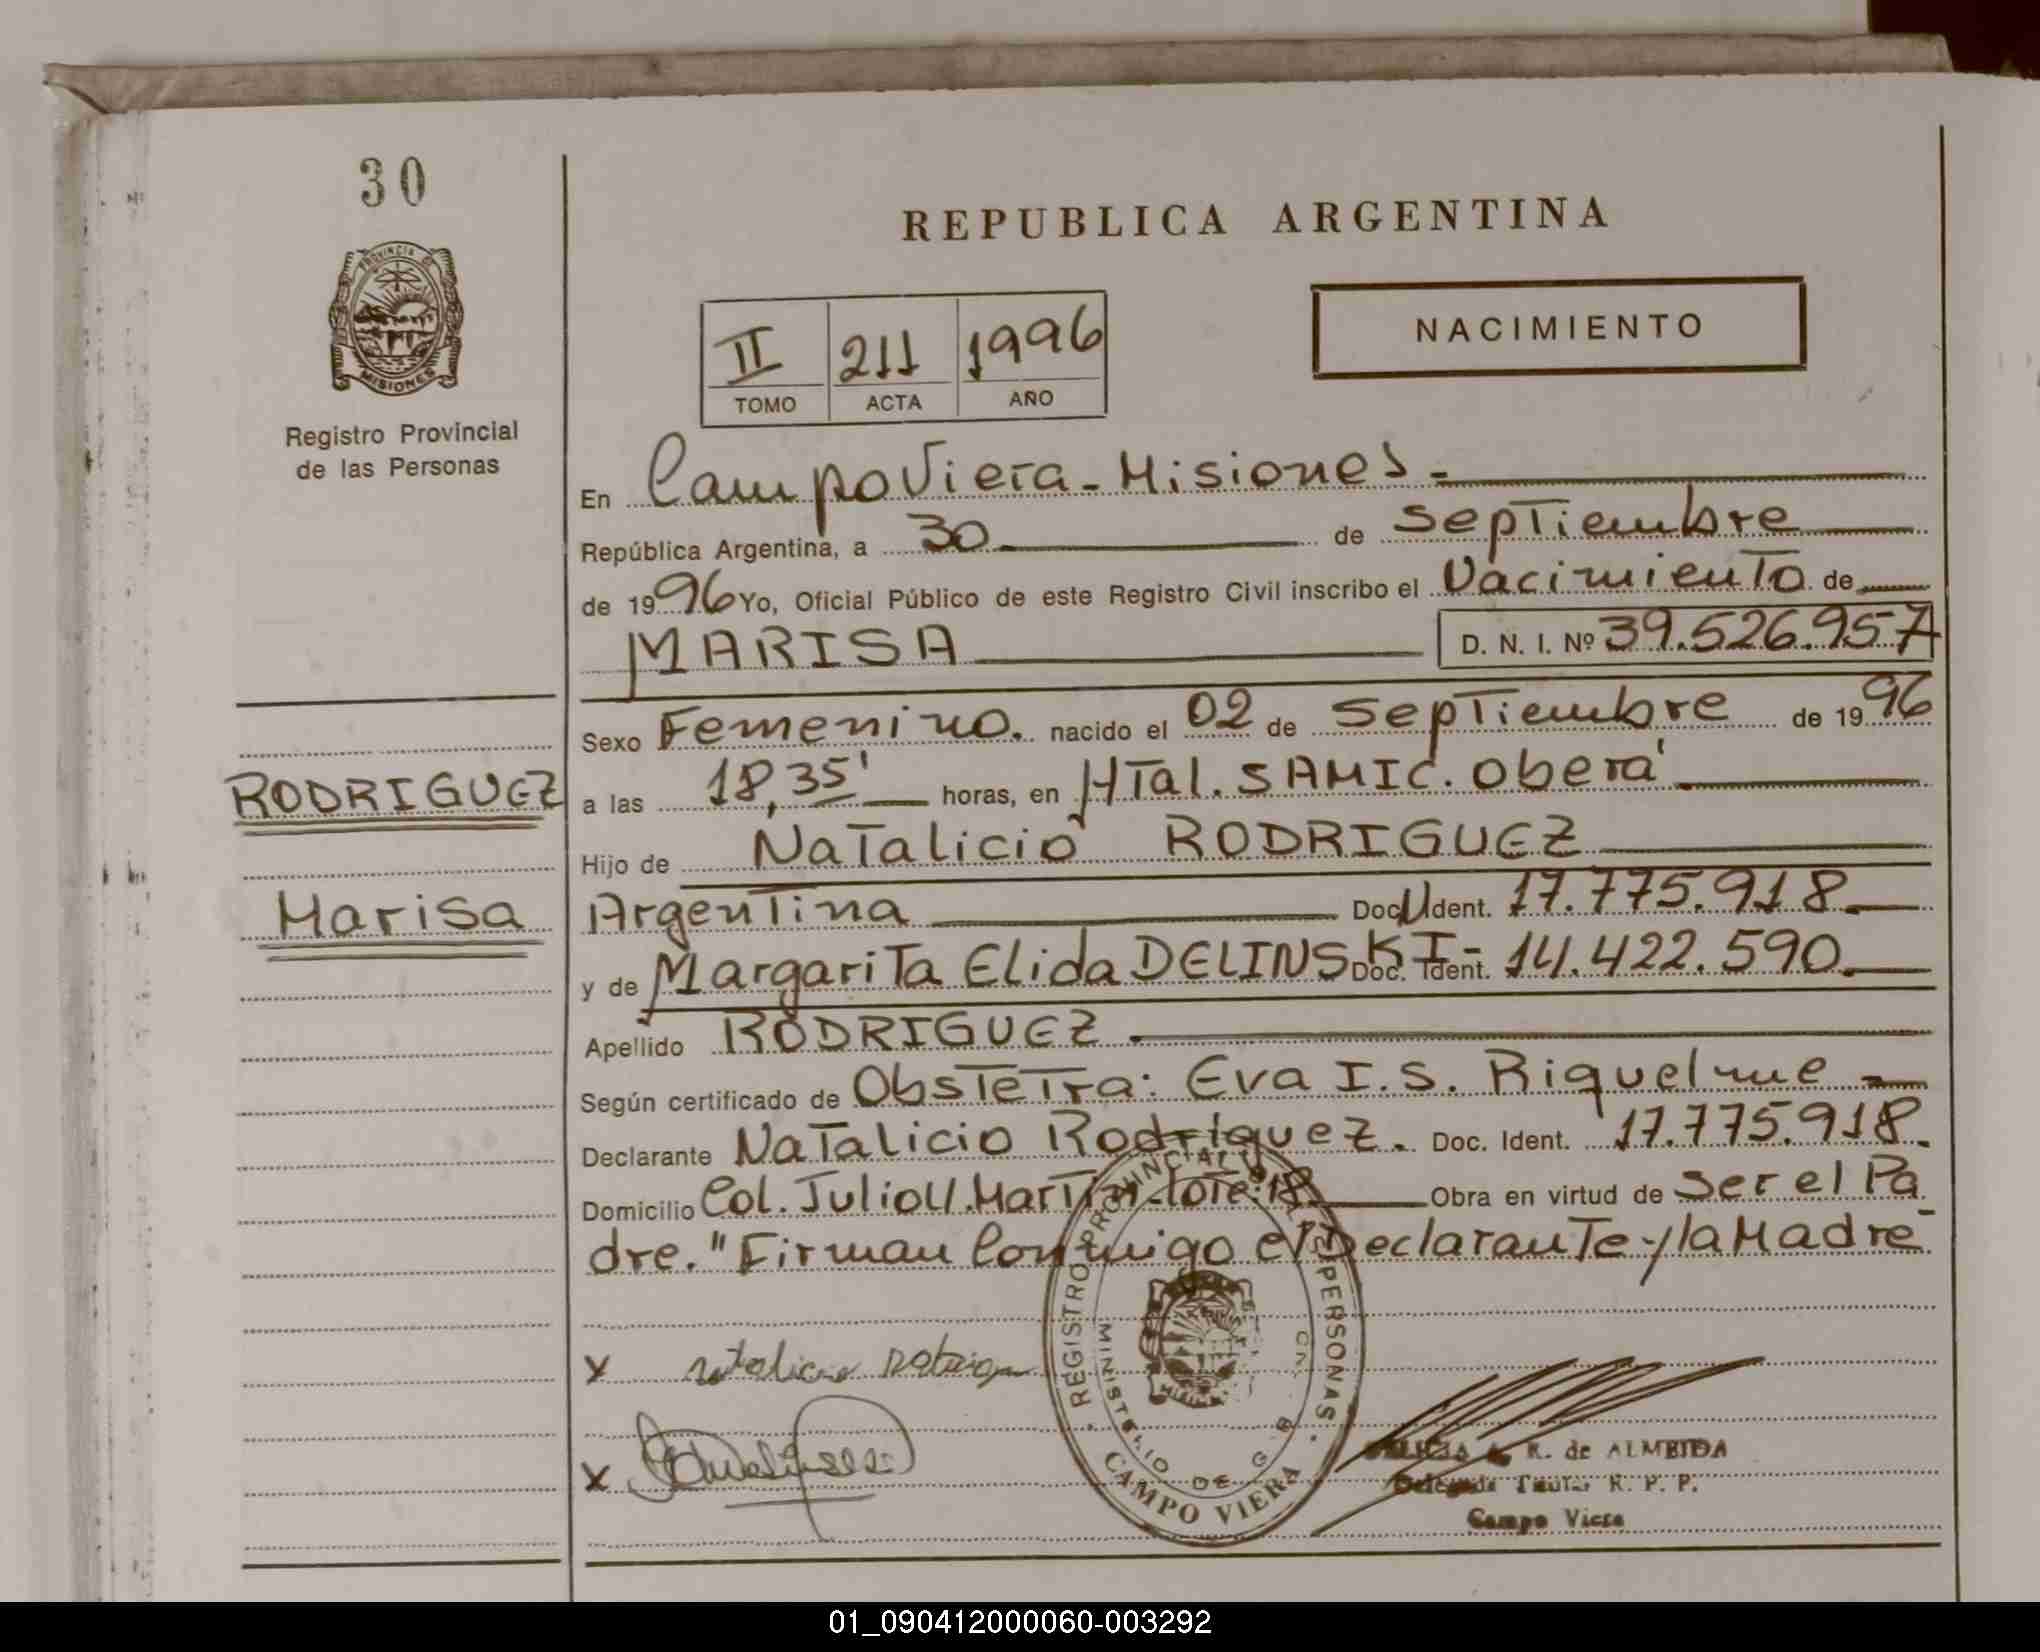 30
PROVINCIA DE
MISIONES
Registro Provincial
de las Personas
RODRIGUEZ
Marisa
REPUBLICA ARGENTINA
II 211 1996
TOMO ACTA AÑO
NACIMIENTO
En Campo Viera - Misiones -
República Argentina, a 30 de Septiembre
de 1996 Yo, Oficial Público de este Registro Civil inscribo el Nacimiento de
MARISA D. N. I. Nº 39.526.957
Sexo Femenino. nacido el 02 de Septiembre de 1996
a las 18,35' horas, en HTal. SAMIC. Oberá
Hijo de Natalicio RODRIGUEZ
Argentina Doc. Ident. 17.775.918
y de Margarita Elida DELINSKI - Doc. Ident. 14.422.590
Apellido RODRIGUEZ
Según certificado de Obstetra: Eva I. S. Riquelme -
Declarante Natalicio Rodriguez. Doc. Ident. 17.775.918.
Domicilio Col. Julio U. Martin - lote: 18 Obra en virtud de Ser el Pa
dre. "Firman Conmigo el Declarante y la Madre"
x natalicio
x
REGISTRO PROVINCIAL DE LAS PERSONAS
MINISTERIO DE G
CAMPO VIERA
R. de ALMEIDA
Delegada Titular R. P. P.
Campo Viera
01_090412000060-003292